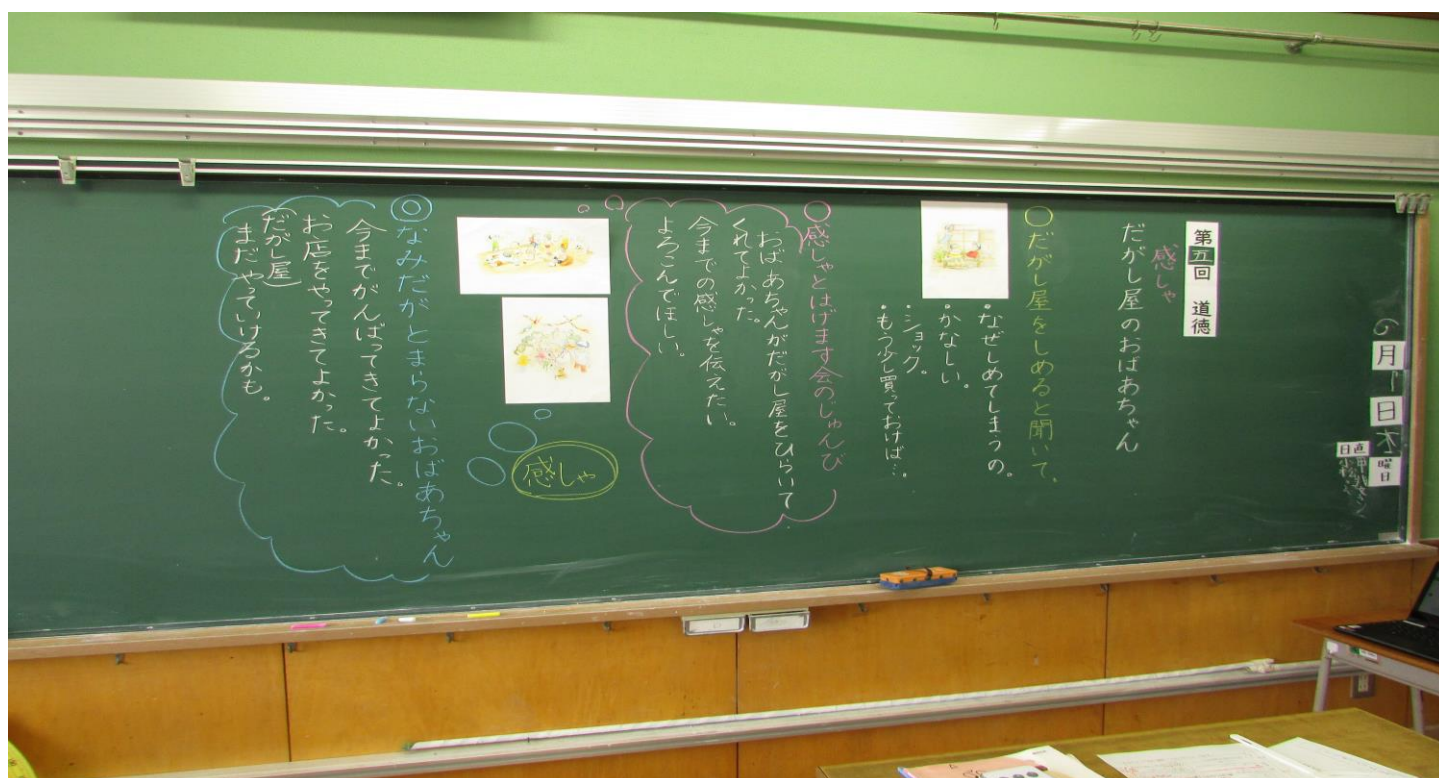 月
日
曜日
日直
第五回 道徳
感しゃ
だがし屋のおばあちゃん
○だがし屋をしめると聞いて、
・なぜしめてしまうの。
・かなしい。
・ショック。
・もう少し買っておけば…。
○感しゃとはげます会のじゅんび
おばあちゃんがだがし屋をひらいて
くれてよかった。
今までの感しゃを伝えたい。
よろこんでほしい。
感しゃ
◎なみだがとまらないおばあちゃん
今までがんばってきてよかった。
お店をやってきてよかった。
(だがし屋)
まだやっていけるかも。